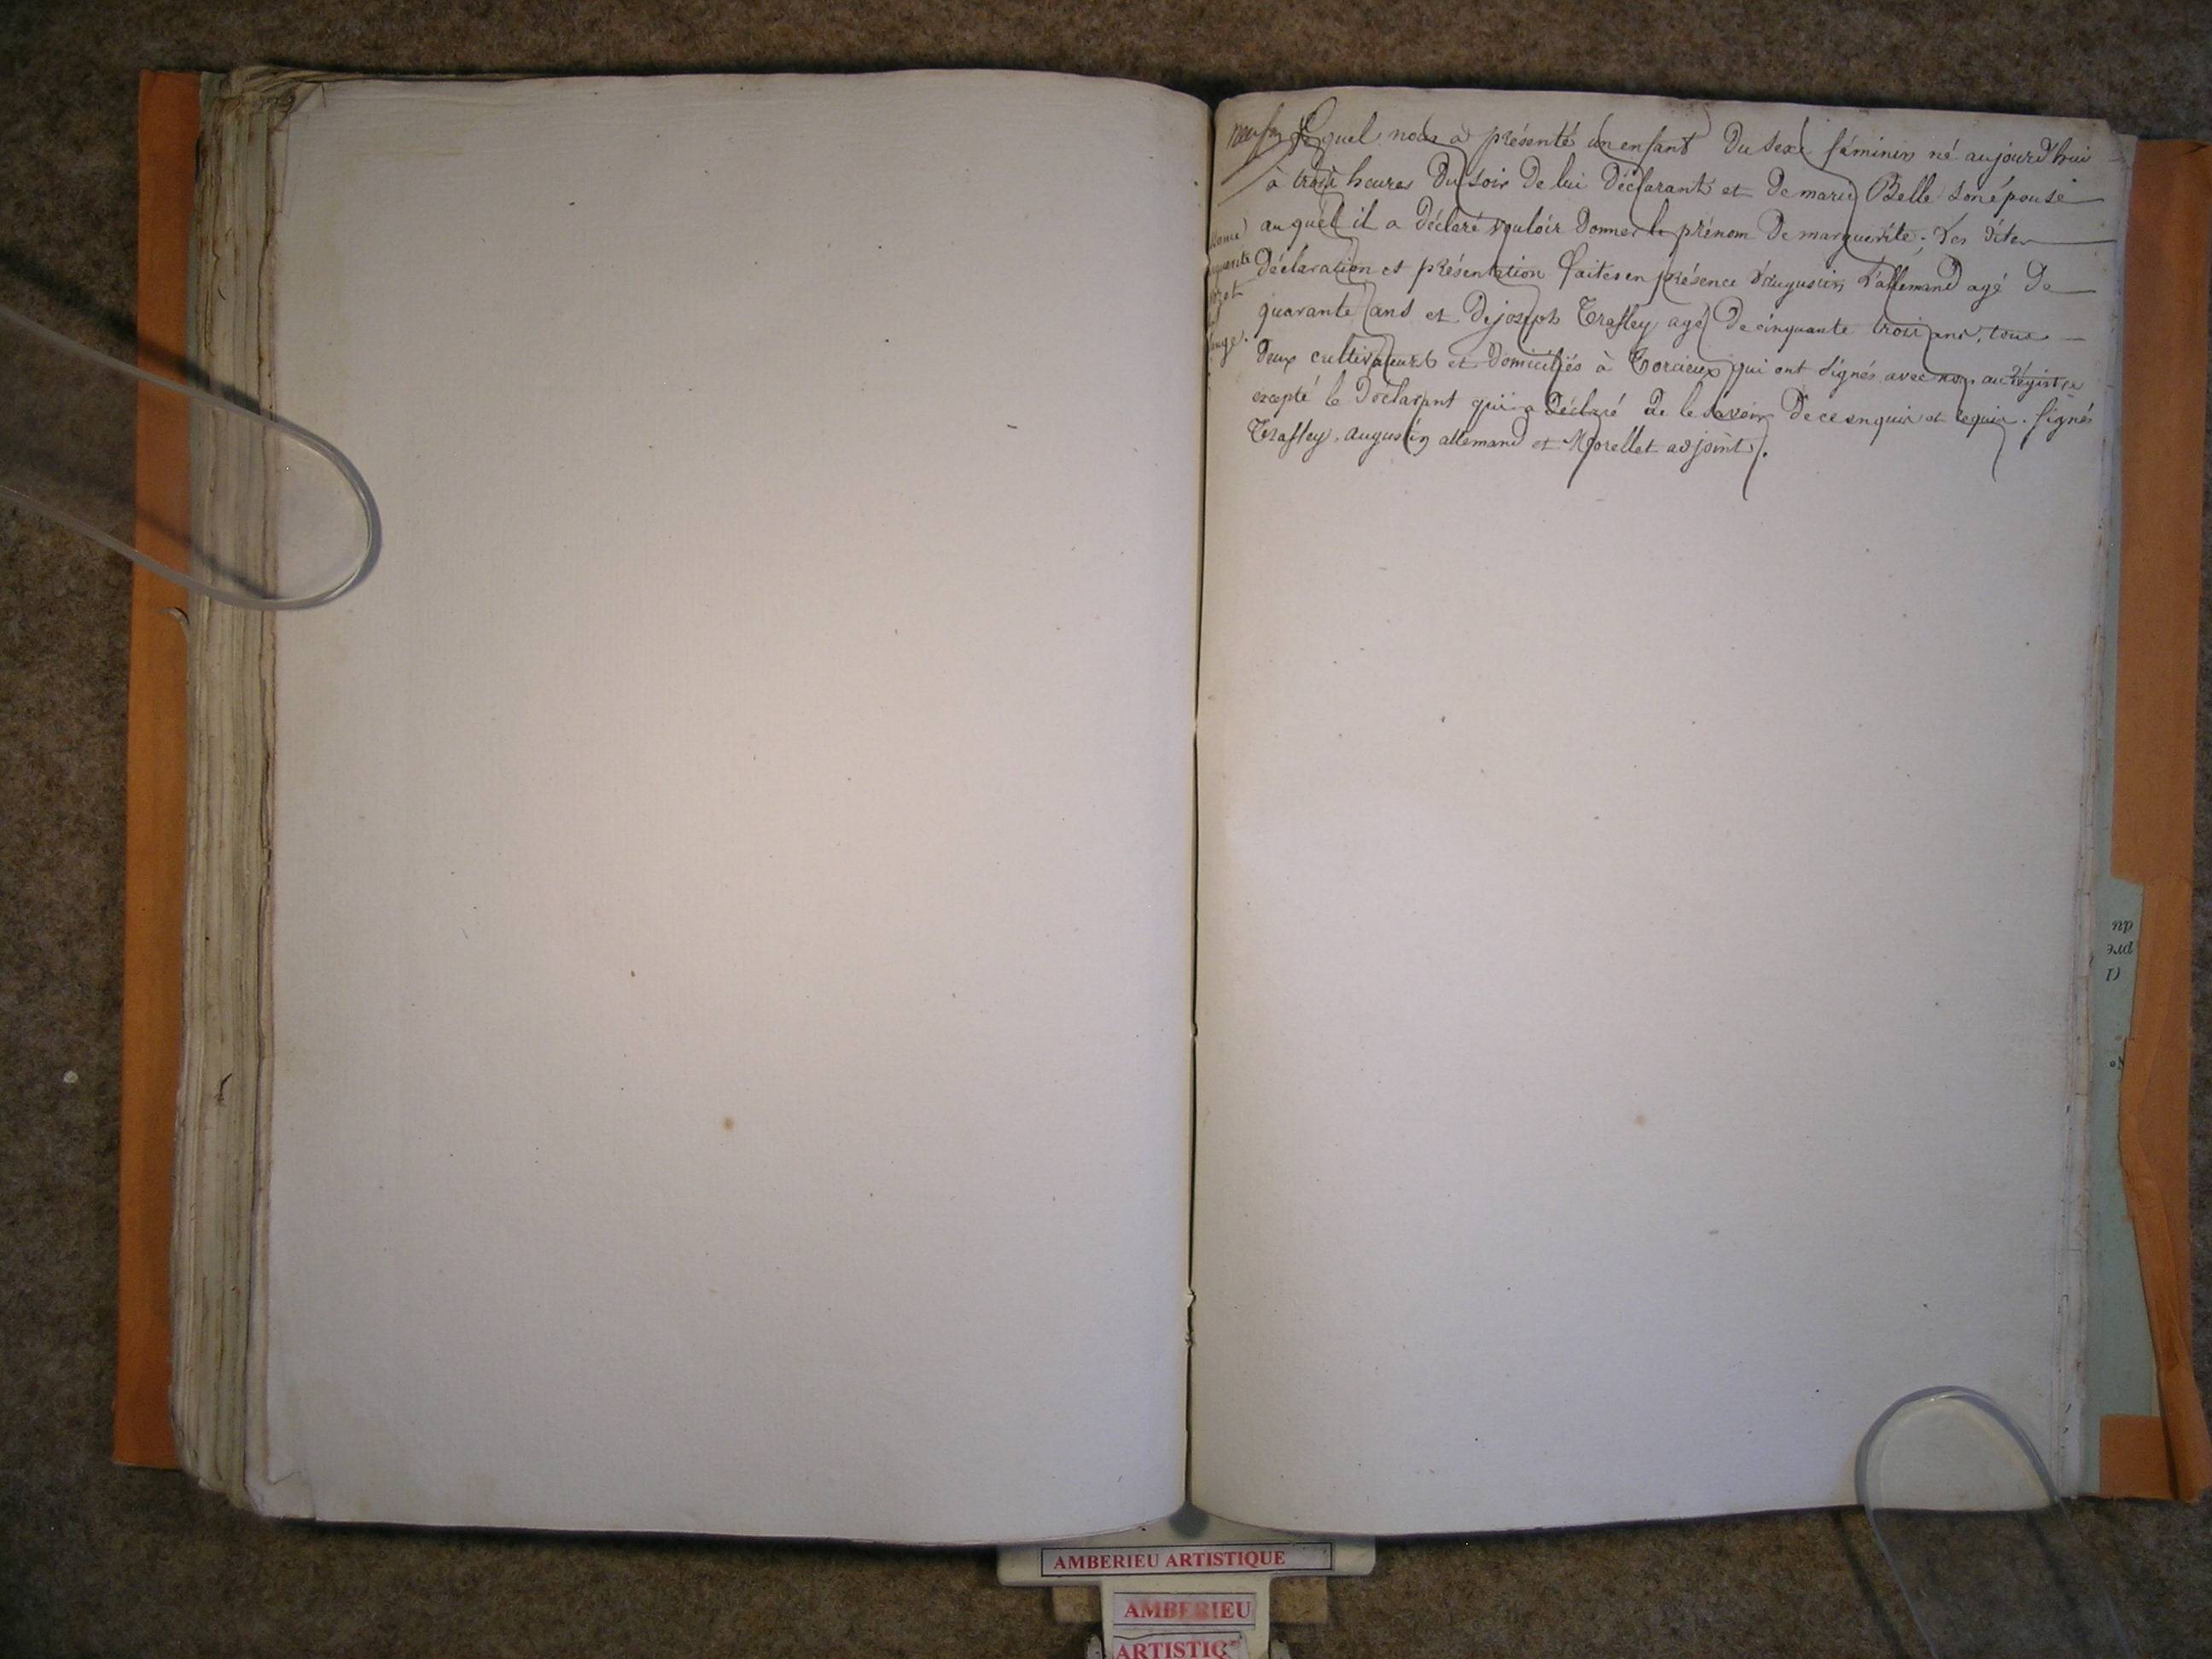 Lequel nous a présenté un enfant du sexe féminin né aujourd'hui
à trois heures du soir de lui déclarant et de marie Belle son épouse
auquel il a déclaré vouloir donner le prénom de marguerite; les dites
déclaration et présentation faites en présence d'augustin allemand agé de
quarante ans et de joseph Trafley agé de cinquante trois ans, tous
deux cultivateurs et domiciliés à Torcieux qui ont signés avec nous au régistre
excepté le déclarant qui a déclaré de le savoir de ce enquis et requis. Signés
Trafley, augustin allemand et Morellet adjoint.
AMBERIEU ARTISTIQUE
AMBERIEU
ARTISTIQ